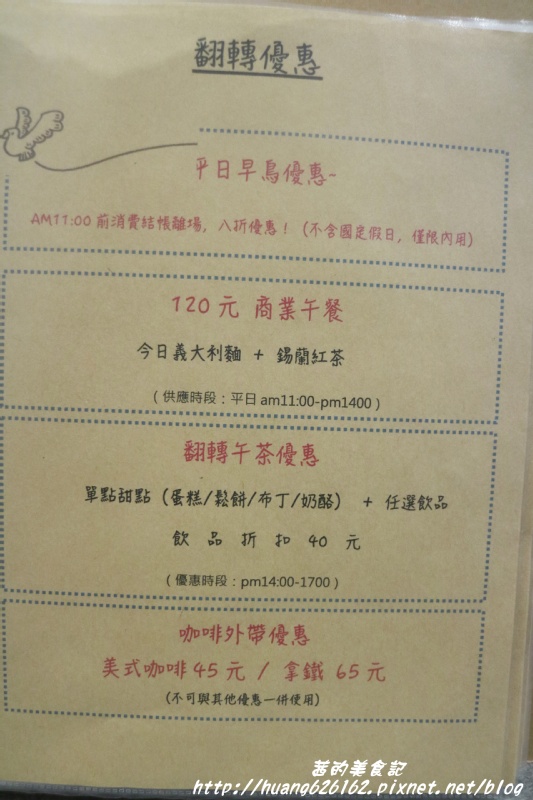 翻轉優惠
平日早鳥優惠~
AM11:00 前消費結帳離場，八折優惠！（不含國定假日，僅限內用）
120 元 商業午餐
今日義大利麵 + 錫蘭紅茶
（供應時段：平日 am11:00-pm1400）
翻轉午茶優惠
單點甜點（蛋糕/鬆餅/布丁/奶酪） + 任選飲品
飲 品 折 扣 40 元
（優惠時段：pm14:00-1700）
咖啡外帶優惠
美式咖啡 45 元 / 拿鐵 65 元
(不可與其他優惠一併使用)
茜的美食記
http://huang626162.pixnet.net/blog